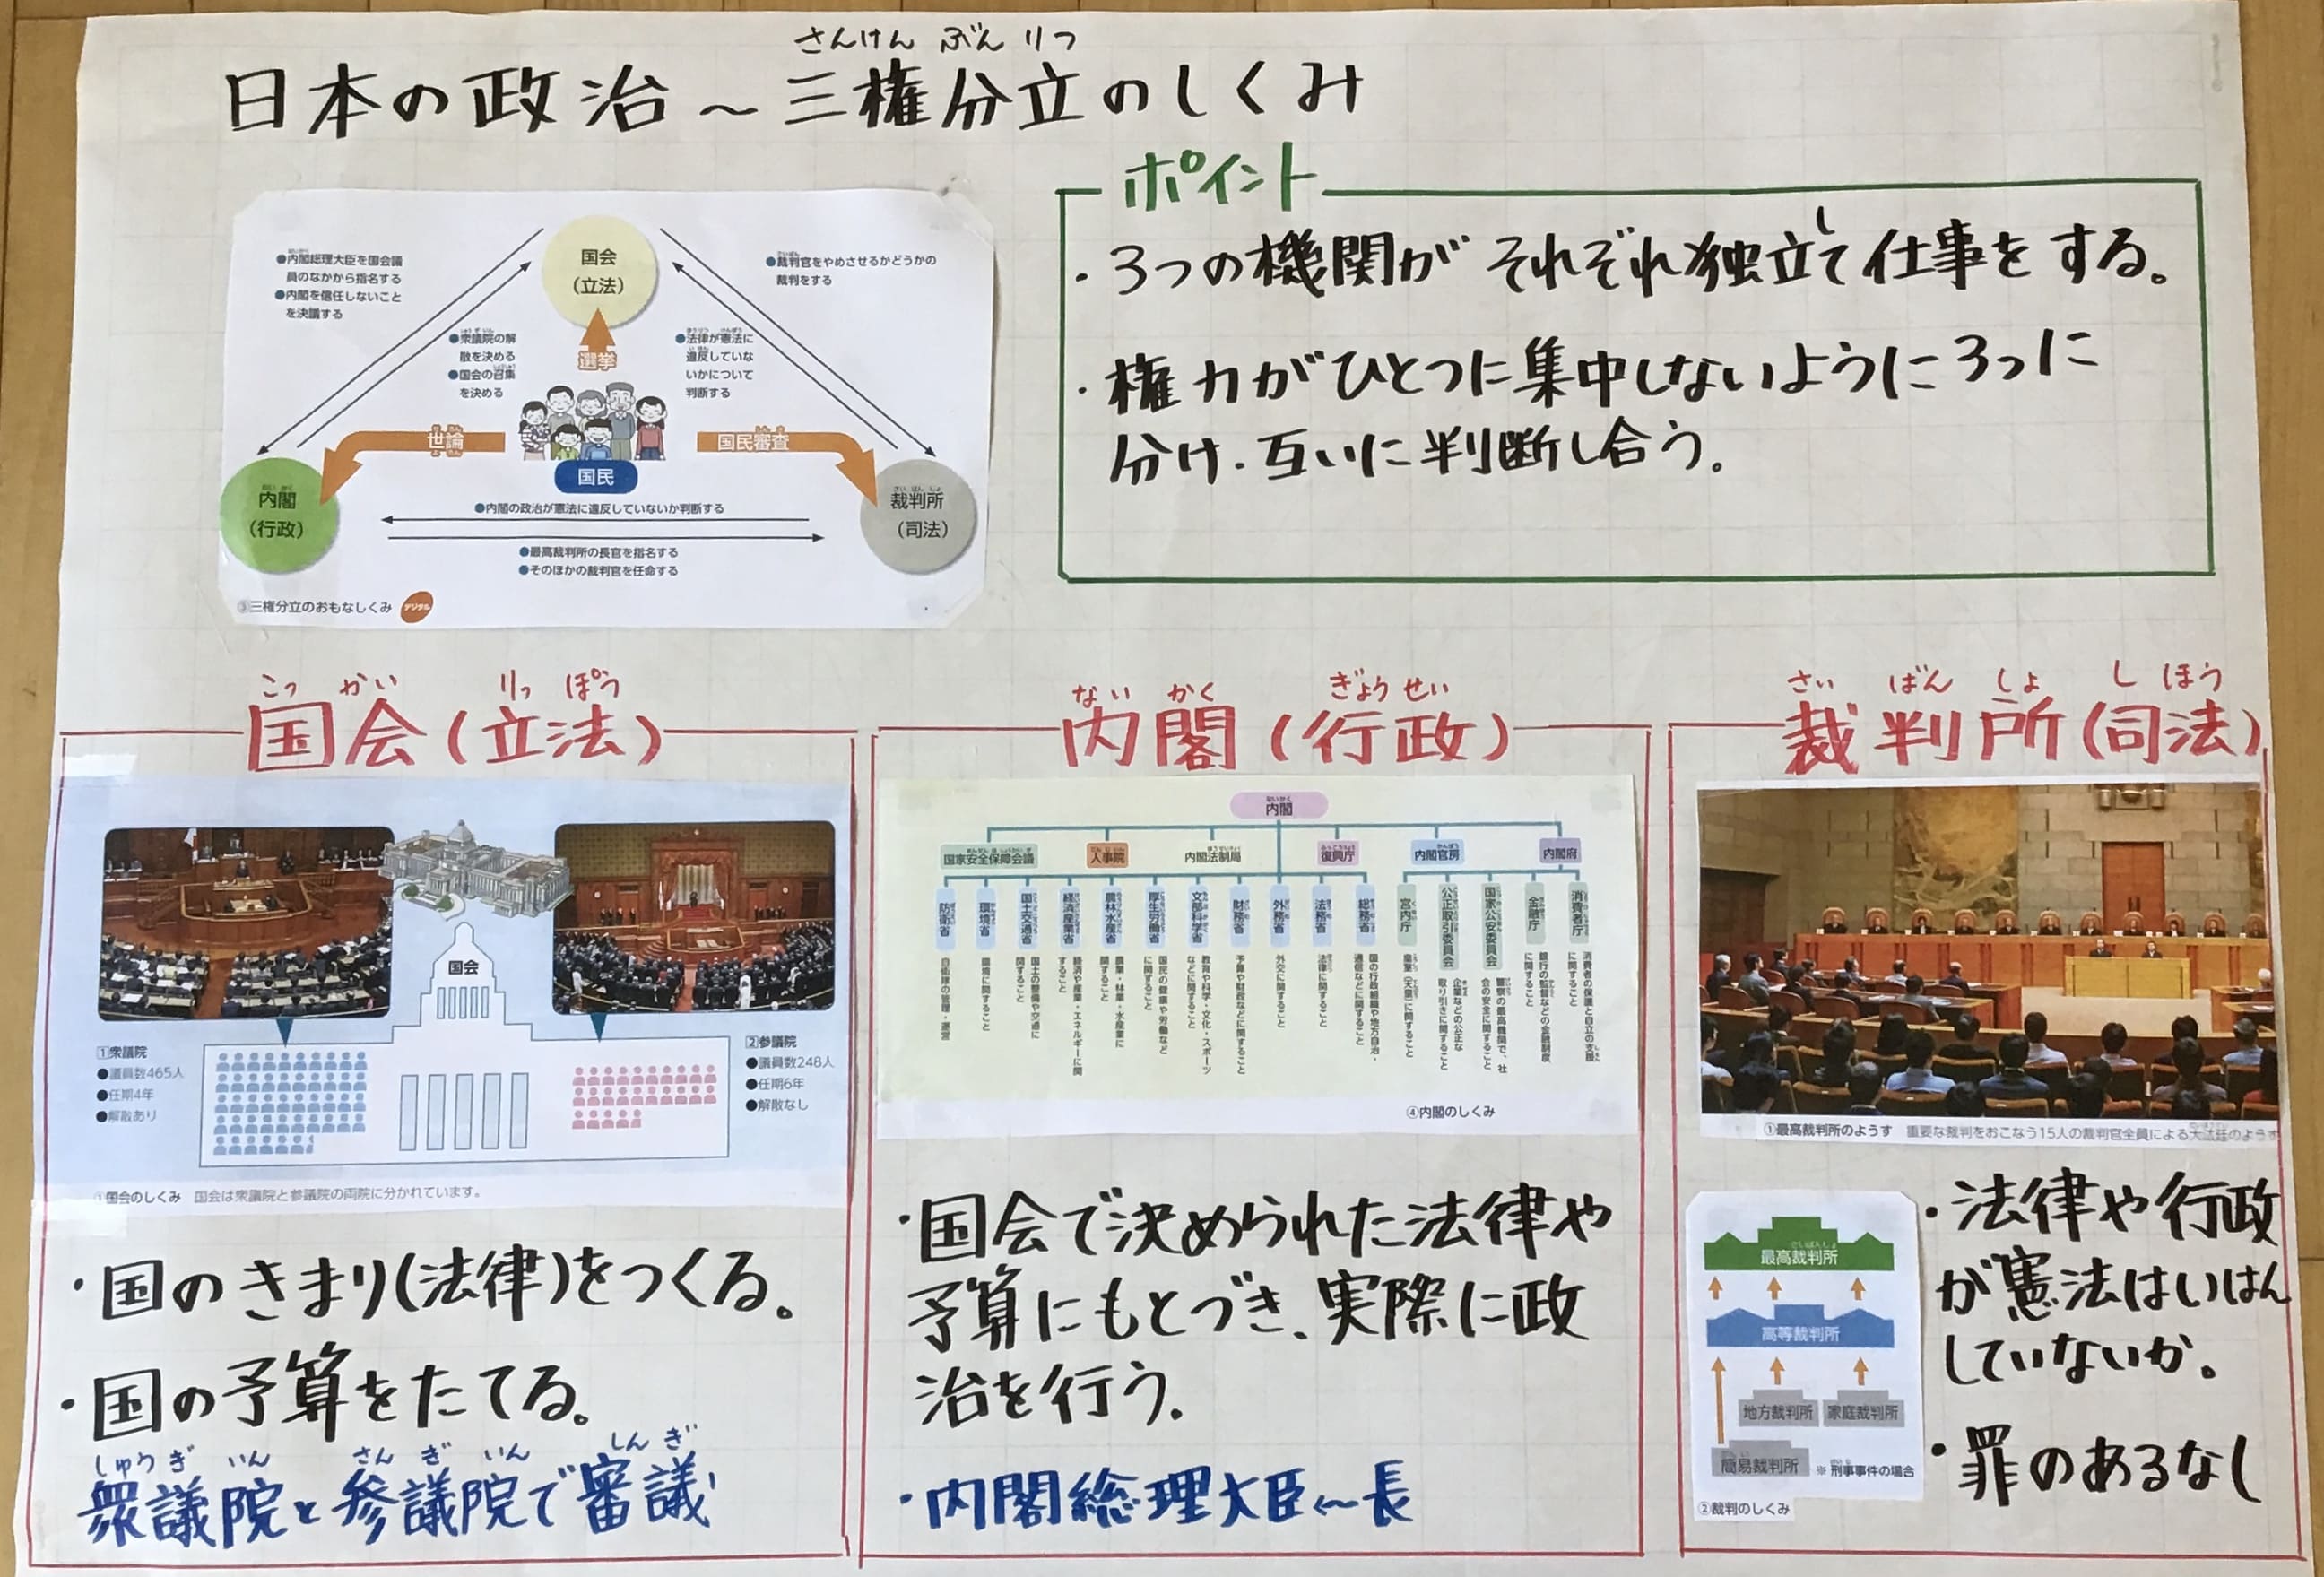 さんけん ぶん りつ
日本の政治〜三権分立のしくみ
国会
(立法)
●内閣総理大臣を国会議
員のなかから指名する
●内閣を信任しないこと
を決議する
●裁判官をやめさせるかどうかの
裁判をする
●衆議院の解
散を決める
●国会の召集
を決める
選挙
●法律が憲法に
違反していな
いかについて
判断する
世論
国民審査
国民
内閣
(行政)
裁判所
(司法)
●内閣の政治が憲法に違反していないか判断する
●最高裁判所の長官を指名する
●そのほかの裁判官を任命する
③三権分立のおもなしくみ
デジタル
ポイント
・3つの機関がそれぞれ独立して仕事をする。
・権力がひとつに集中しないように3つに
分け、互いに判断し合う。
こっ かい りっ ぽう
国会(立法)
国会
①衆議院
●議員数465人
●任期4年
●解散あり
②参議院
●議員数248人
●任期6年
●解散なし
①国会のしくみ 国会は衆議院と参議院の両院に分かれています。
・国のきまり(法律)をつくる。
・国の予算をたてる。
しゅうぎ いん さん ぎ いん しん ぎ
衆議院と参議院で審議
ない かく ぎょう せい
内閣(行政)
内閣
国家安全保障会議
人事院
内閣法制局
復興庁
内閣官房
内閣府
防衛省
自衛隊の管理・運営
環境省
環境に関すること
国土交通省
国土の整備や交通に
関すること
経済産業省
経済や産業・エネルギーに関
すること
農林水産省
農業・林業・水産業に
関すること
厚生労働省
国民の健康や労働など
に関すること
文部科学省
教育や科学・文化・スポーツ
などに関すること
財務省
予算や財政などに関すること
外務省
外交に関すること
法務省
法律に関すること
総務省
国の行政組織や地方自治・
通信などに関すること
宮内庁
皇室(天皇)に関すること
公正取引委員会
企業などの公正な
取り引きに関すること
国家公安委員会
警察の最高機関で、社
会の安全に関すること
金融庁
銀行の監督などの金融制度
に関すること
消費者庁
消費者の保護と自立の支援
に関すること
④内閣のしくみ
・国会で決められた法律や
予算にもとづき、実際に政
治を行う。
・内閣総理大臣←長
さい ばん しょ し ほう
裁判所(司法)
①最高裁判所のようす 重要な裁判をおこなう15人の裁判官全員による大法廷のようす
最高裁判所
高等裁判所
地方裁判所
家庭裁判所
簡易裁判所
※刑事事件の場合
②裁判のしくみ
・法律や行政
が憲法はいはん
していないか。
・罪のあるなし